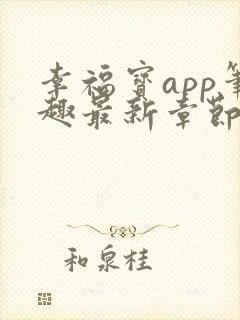 幸福宝app笔
趣最新章节
和泉桂